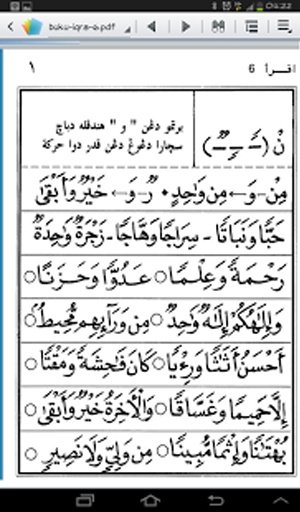 buku-iqra-6.pdf
١
اقرأ 6
نْ (ـًـ ـٍـ ـٌـ)
برتمو دڠن " و " هندقله دباچ
سچارا دڠوڠ دڠن قدر دوا حركة
مِنْ - وَ ← مِن وَاحِدٍ • ـٌ ر - وَ ← خَيْرٌ وَأَبْقَىٰ
حَبًّا وَنَبَاتًا - سِرَاجًا وَهَّاجًا - زَجْرَةٌ وَاحِدَةٌ
رَحْمَةً وَعِلْمًا ○ عَدُوًّا وَحَزَنًا ○
وَإِلَٰهُكُمْ إِلَٰهٌ وَاحِدٌ ○ مِن وَرَآءِهِم مُّحِيطٌ ○
أَحْسَنُ أَثَٰثًا وَرِءْيًا ○ كَانَ فَٰحِشَةً وَمَقْتًا ○
إِلَّا حَمِيمًا وَغَسَّاقًا ○ وَالْأٓخِرَةُ خَيْرٌ وَأَبْقَىٰ ○
بُهْتَٰنًا وَإِثْمًا مُّبِينًا ○ مِن وَلِيٍّ وَلَا نَصِيرٍ ○